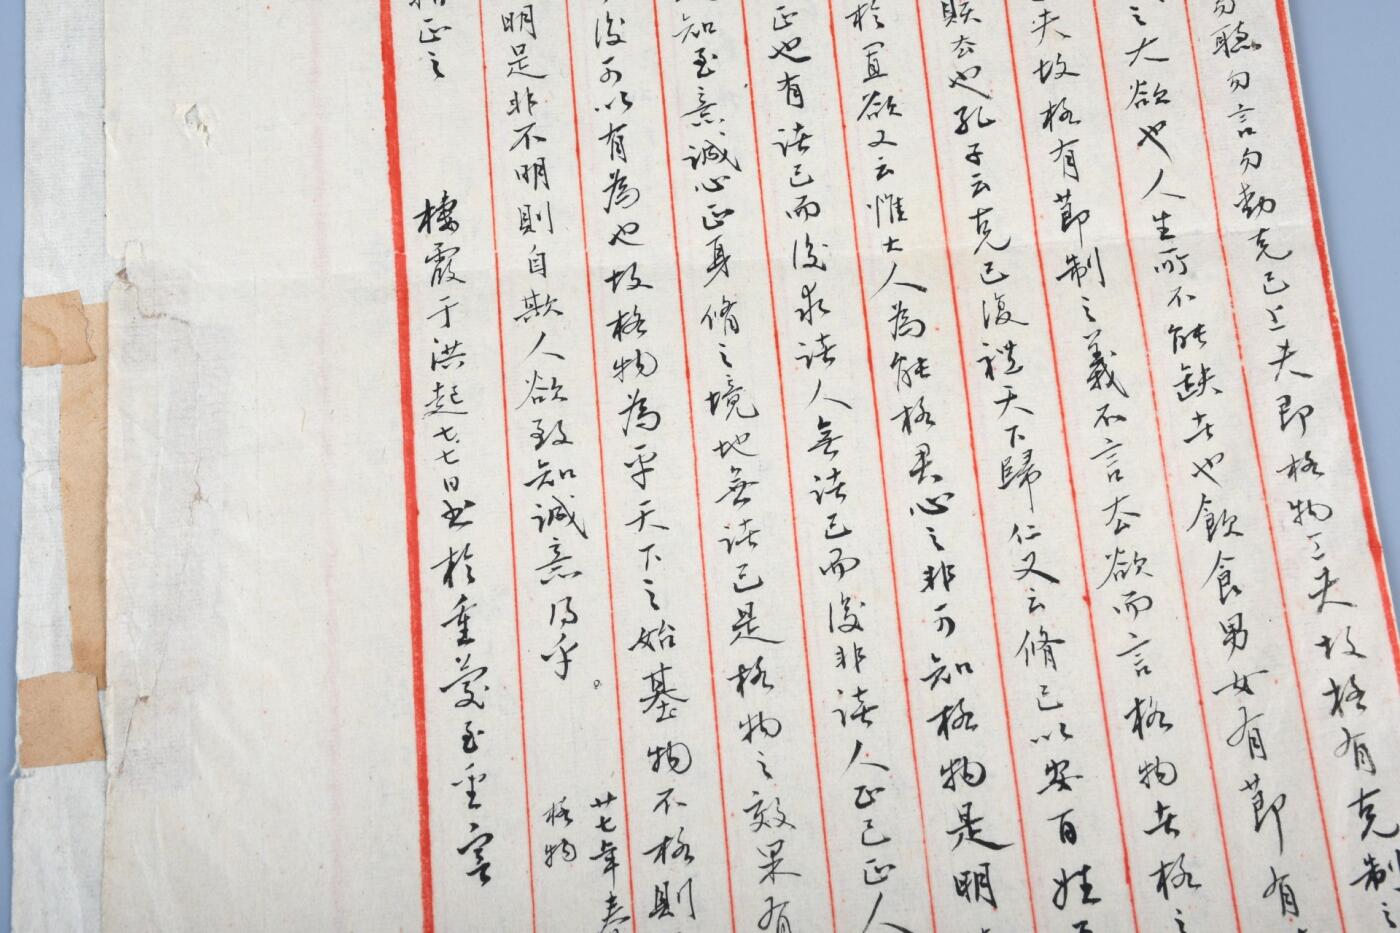 勿聽勿言勿動克己工夫即格物工夫故格有克制之
之大欲也人生所不能缺者也飲食男女有節有
夫故格有節制之義不言去欲而言格物者格之
賕去也孔子云克己復禮天下歸仁又云脩己以安百姓
於寡欲又云惟大人為能格君心之非可知格物是明
正也有諸己而後求諸人無諸己而後非諸人正己正人
知至意誠心正身脩之境地無諸己是格物之效果有
後可以有為也故格物為平天下之始基物不格則
明是非不明則自欺人欲致知誠意得乎。
廿七年春
格物
正之
棲霞于洪起七七日書於重慶至聖宮